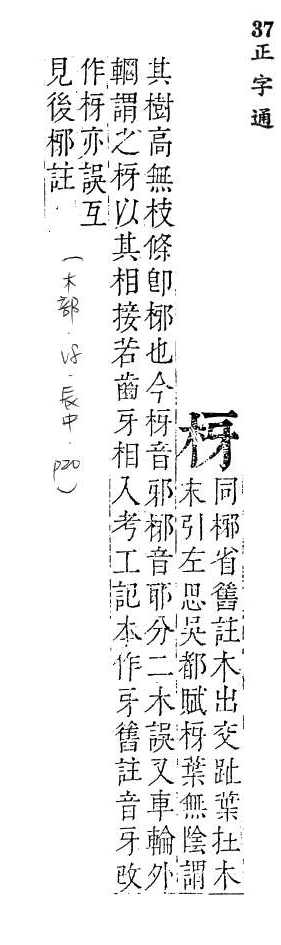 37正字通
枒
同椰省舊註木出交趾葉在木
末引左思吳都賦枒葉無陰謂
其樹高無枝條卽椰也今枒音邪椰音耶分二木誤又車輪外
輞謂之枒以其相接若齒牙相入考工記本作牙舊註音牙改
作枒亦誤互
見後椰註
(木部.辰中.p20)